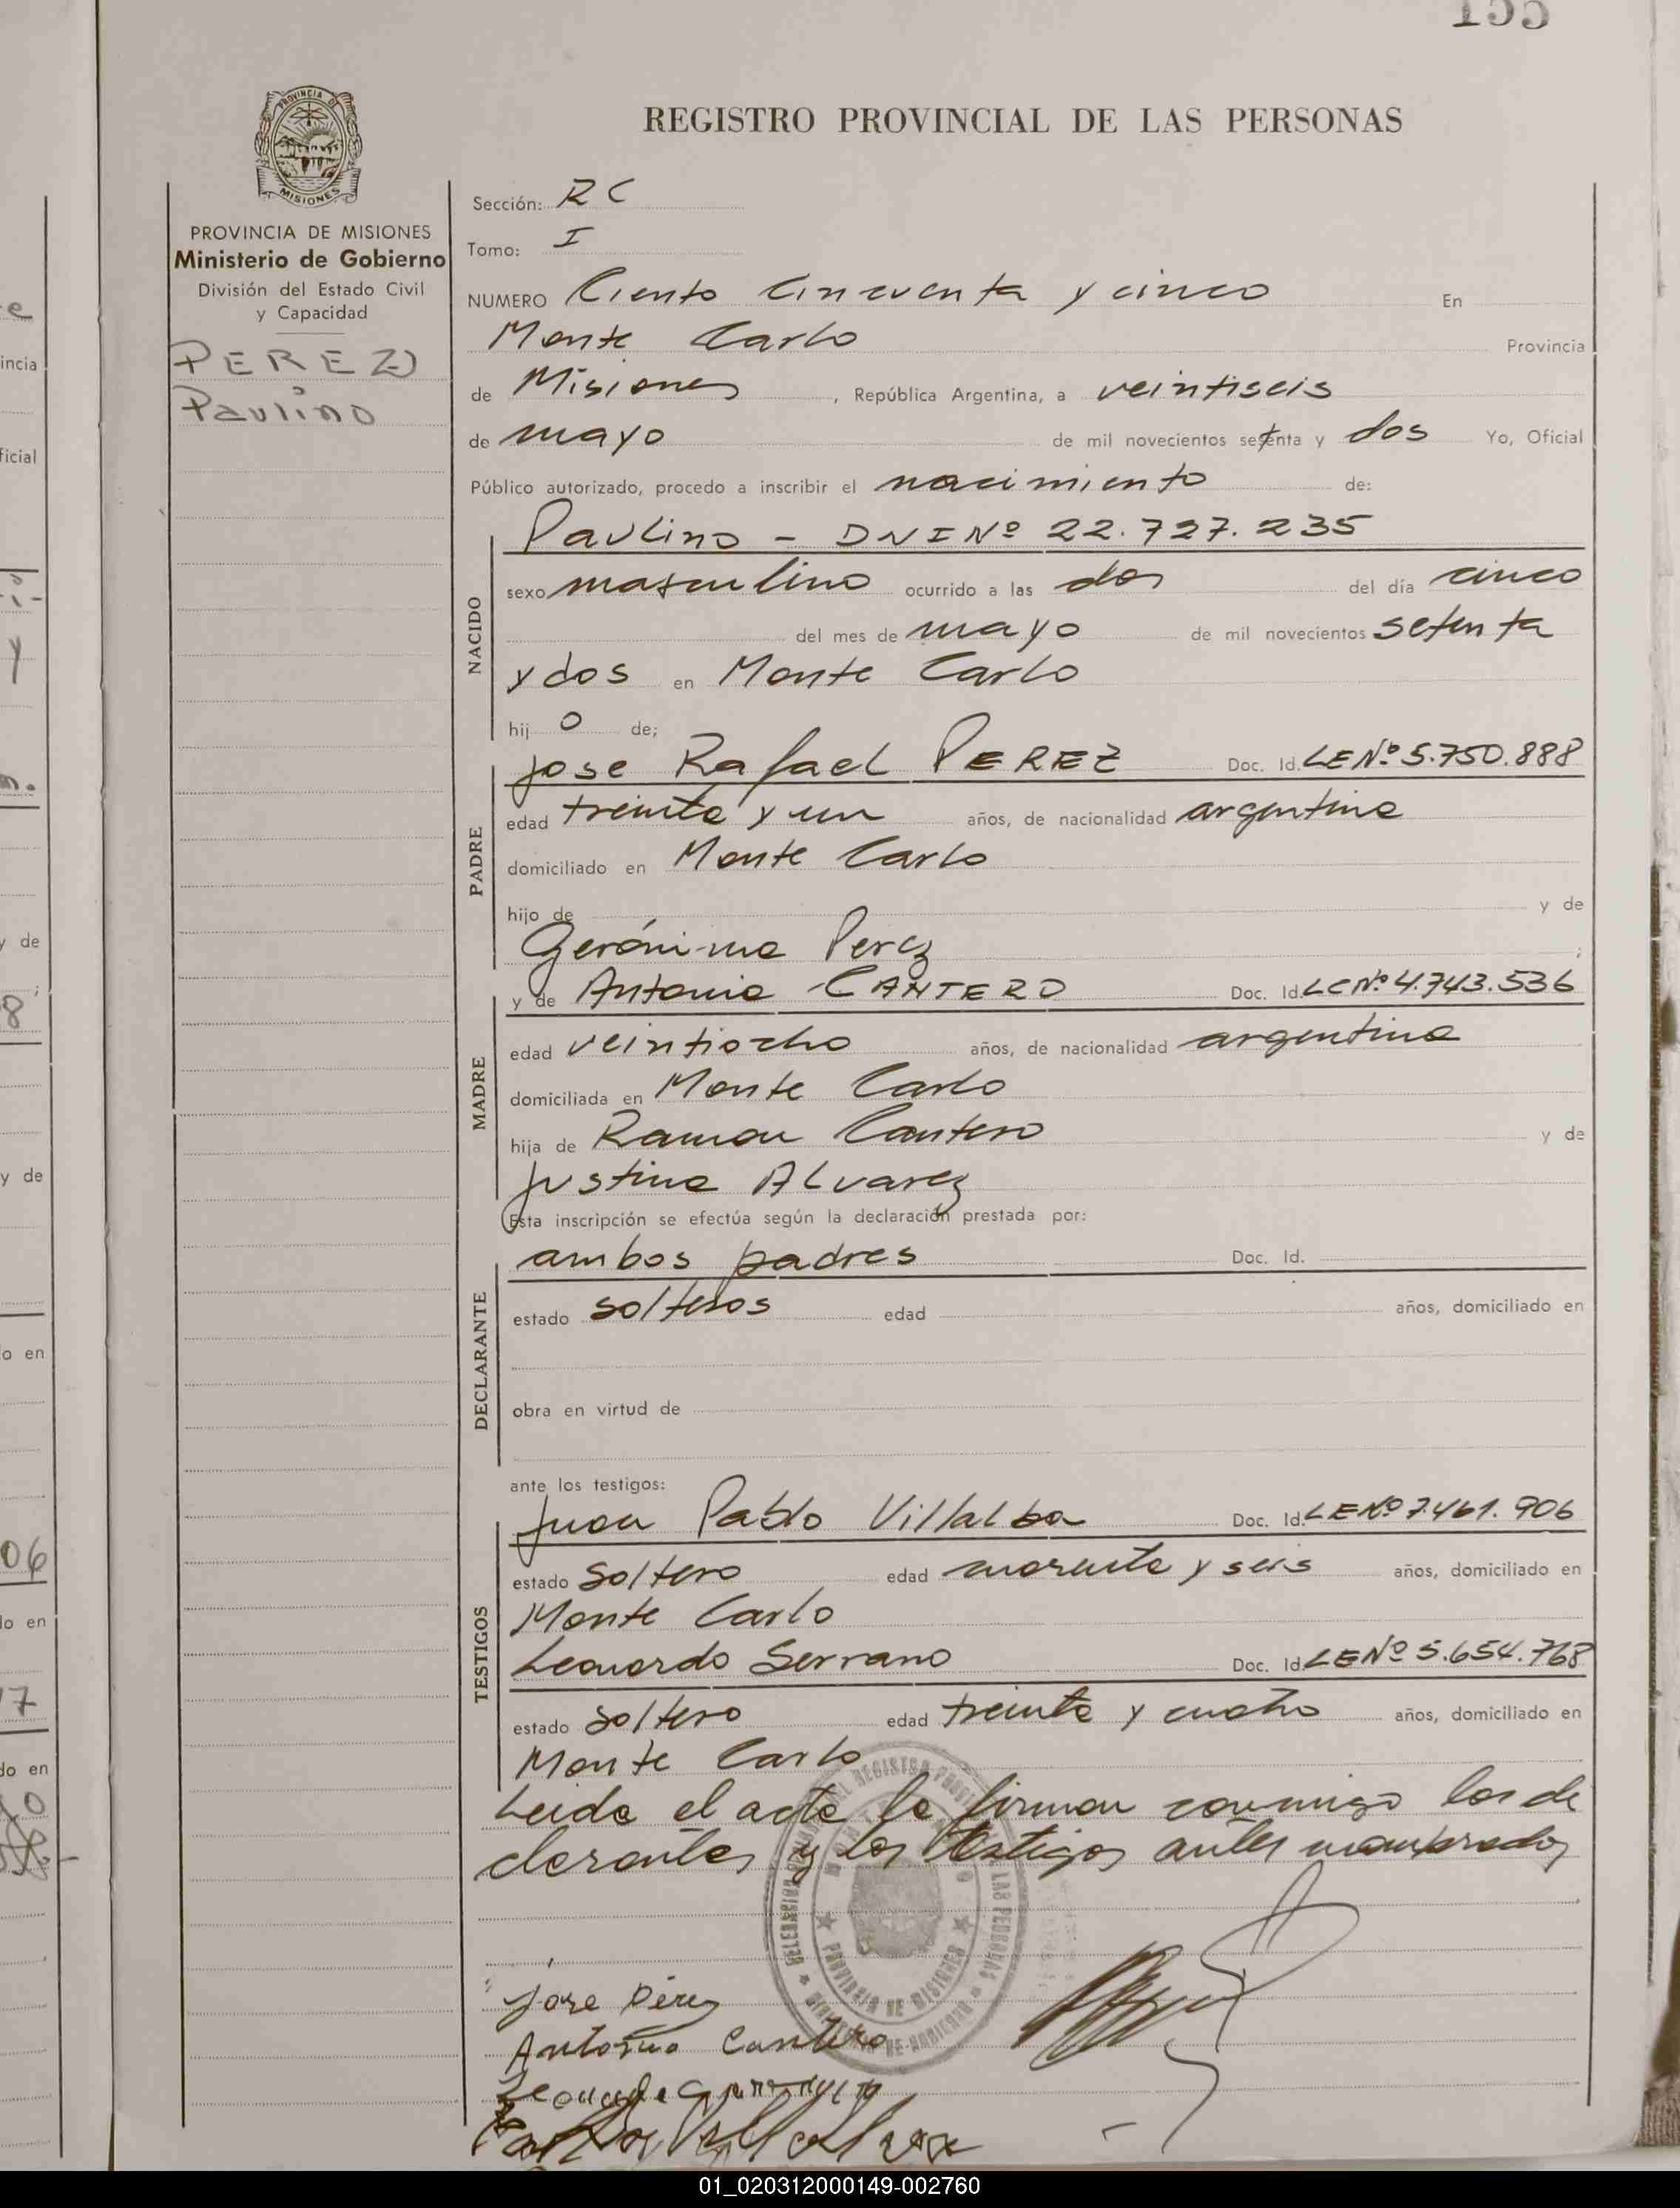 155
REGISTRO PROVINCIAL DE LAS PERSONAS
PROVINCIA DE MISIONES
Ministerio de Gobierno
División del Estado Civil
y Capacidad
PEREZ
Paulino
Sección: R C
Tomo: I
NUMERO Ciento Cincuenta y cinco En
Monte Carlo Provincia
de Misiones, República Argentina, a veintiseis
de mayo de mil novecientos setenta y dos Yo, Oficial
Público autorizado, procedo a inscribir el nacimiento de:
NACIDO
Paulino - DNI Nº 22.727.235
sexo masculino ocurrido a las dos del día cinco
del mes de mayo de mil novecientos setenta
y dos en Monte Carlo
hij o de;
PADRE
Jose Rafael PEREZ Doc. Id. LE Nº 5.750.888
edad treinta y un años, de nacionalidad argentina
domiciliado en Monte Carlo
hijo de y de
Gerónima Perez ;
MADRE
y de Antonia CANTERO Doc. Id. LC Nº 4.743.536
edad veintiocho años, de nacionalidad argentina
domiciliada en Monte Carlo
hija de Ramon Cantero y de
Justina Alvarez
Esta inscripción se efectúa según la declaración prestada por:
DECLARANTE
ambos padres Doc. Id.
estado solteros edad años, domiciliado en
obra en virtud de
ante los testigos:
TESTIGOS
Juan Pablo Villalba Doc. Id. LE Nº 7.461.906
estado Soltero edad cuarenta y seis años, domiciliado en
Monte Carlo
Leonardo Serrano Doc. Id. LE Nº 5.654.768
estado Soltero edad treinta y cuatro años, domiciliado en
Monte Carlo
Leida el acta la firman conmigo los de
clarantes y los testigos antes nombrados
PROVINCIA DE MISIONES
Jose Pérez
Antonia Cantero
01_020312000149-002760